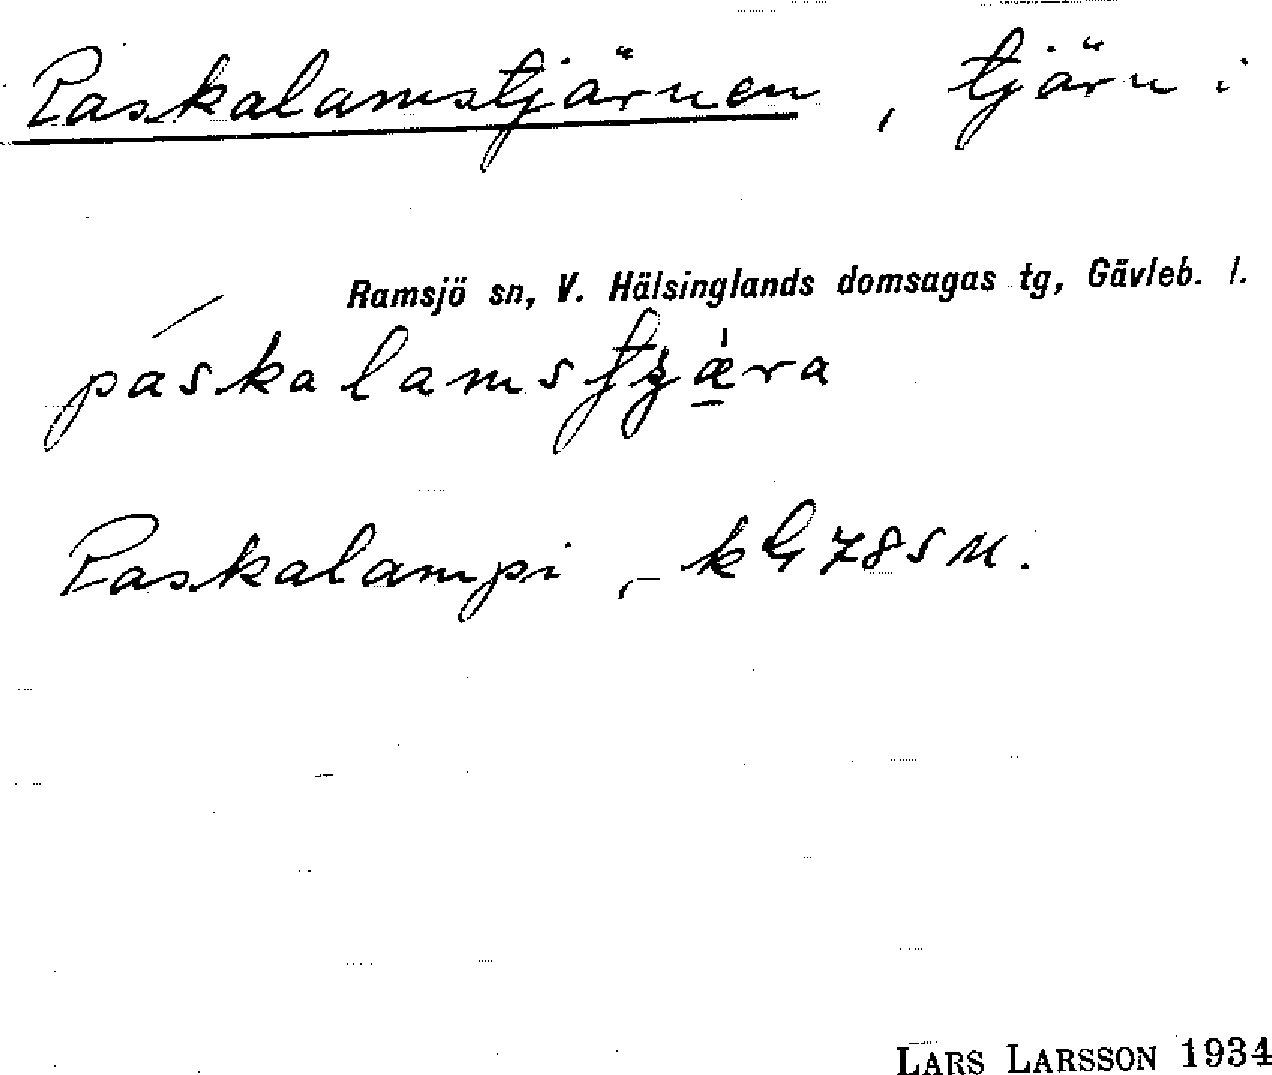 Paskalamstjärnen, tjärn i
Ramsjö sn, V. Hälsinglands domsagas tg, Gävleb. l.
Paskalampi, –
LARS LARSSON 1934